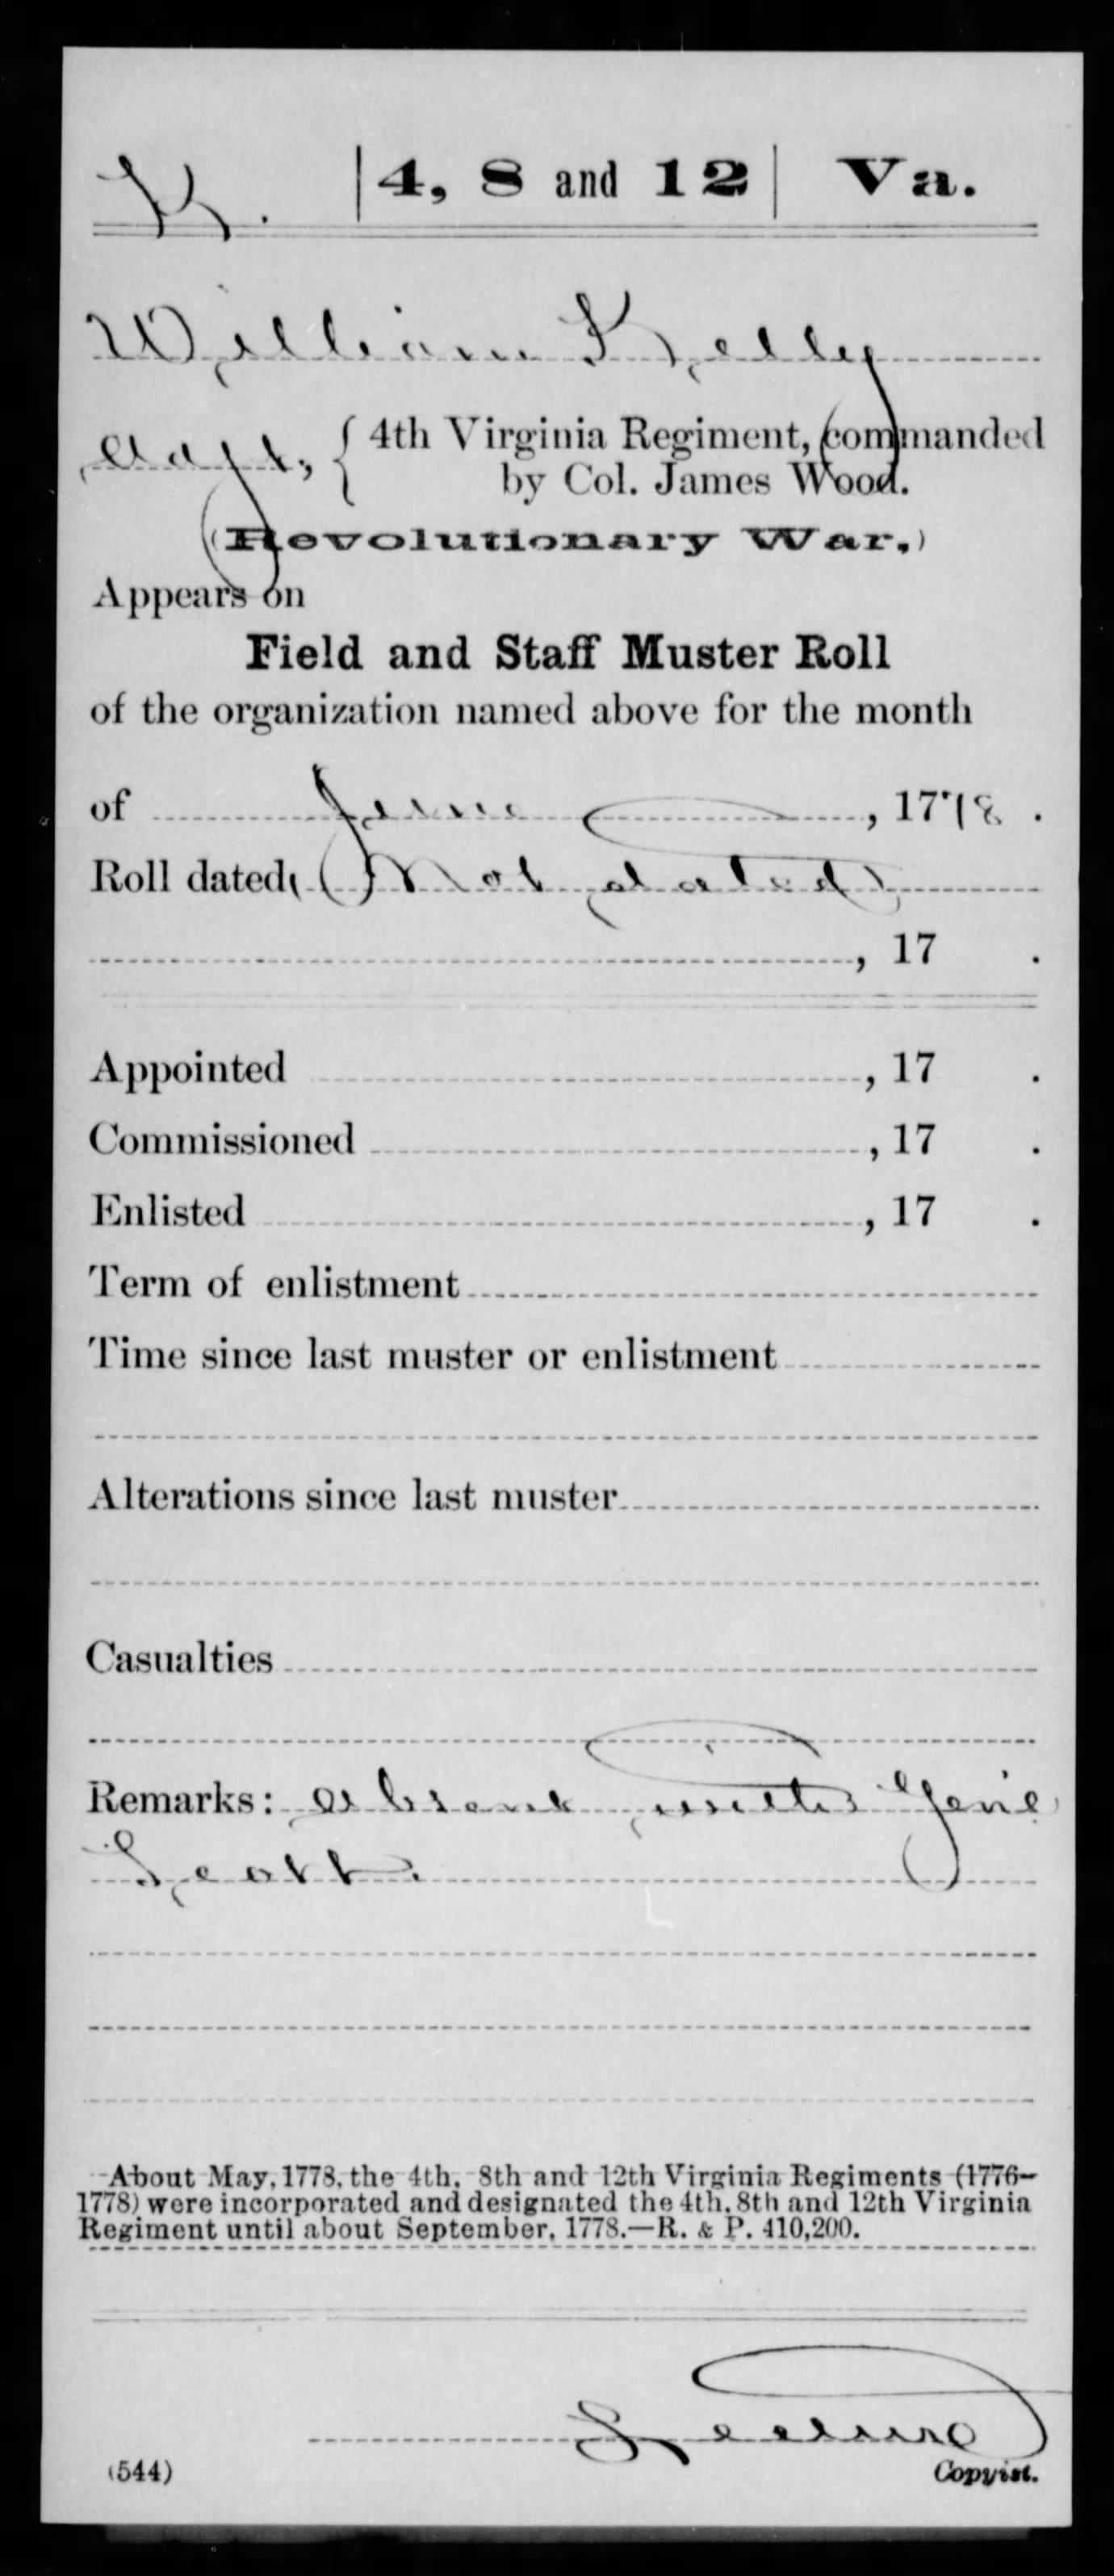 K. | 4, 8 and 12 | Va.
William Kelly
Capt, { 4th Virginia Regiment, commanded
by Col. James Wood.
(Revolutionary War.)
Appears on
Field and Staff Muster Roll
of the organization named above for the month
of June, 1778.
Roll dated (Not dated)
, 17 .
Appointed , 17 .
Commissioned , 17 .
Enlisted , 17 .
Term of enlistment
Time since last muster or enlistment
Alterations since last muster
Casualties
Remarks: Absent with Genl
Scott.
About May, 1778, the 4th, 8th and 12th Virginia Regiments (1776–
1778) were incorporated and designated the 4th, 8th and 12th Virginia
Regiment until about September, 1778.—R. & P. 410,200.
(544)
Copyist.